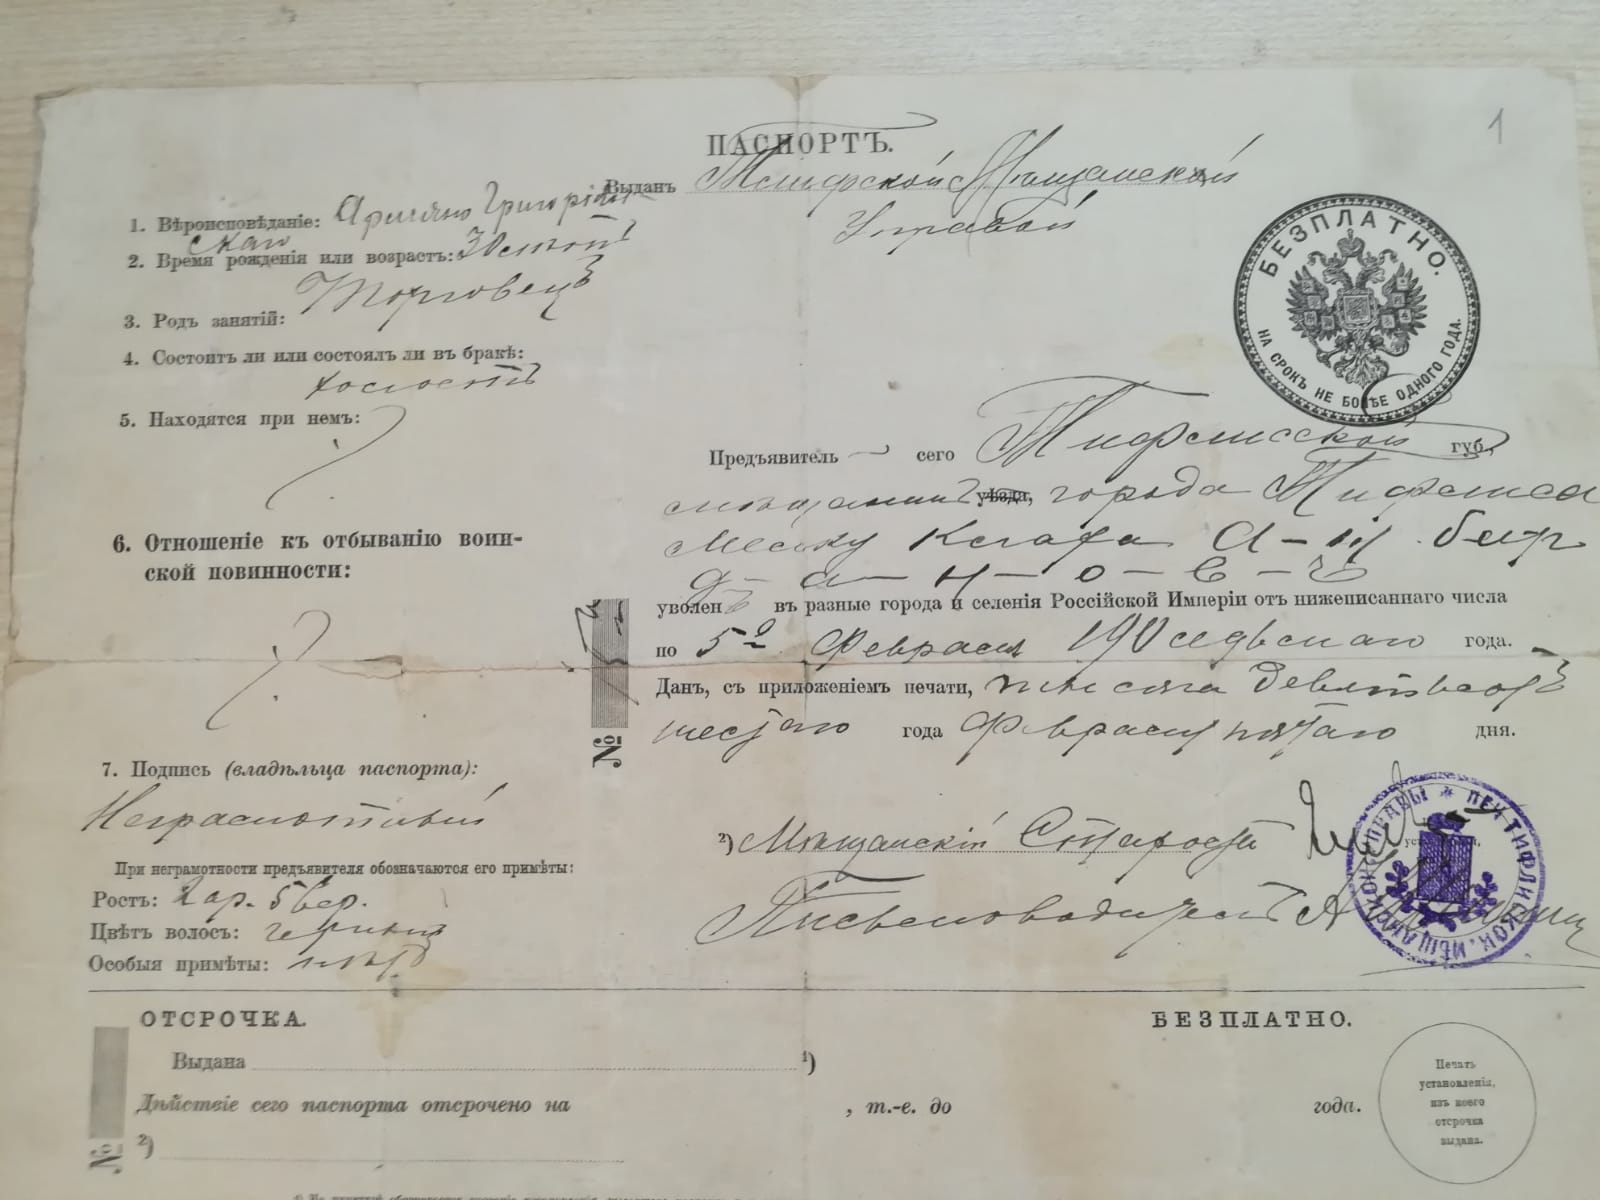 1
ПАСПОРТЪ.
Выданъ Тифлисской Мѣщанской
Управой
1. Вѣроисповѣданіе: Армяно Григоріан
скаго
2. Время рожденія или возрастъ: 30 лѣтъ
3. Родъ занятій: Торговецъ
4. Состоитъ ли или состоялъ ли въ бракѣ:
холостъ
5. Находятся при немъ:
6. Отношеніе къ отбыванію воин-
ской повинности:
7. Подпись (владѣльца паспорта):
Неграмотный
При неграмотности предъявителя обозначаются его примѣты:
Ростъ: 2 ар. 5 вер.
Цвѣтъ волосъ: черный
Особыя примѣты: нѣтъ
БЕЗПЛАТНО.
НА СРОКЪ НЕ БОЛѢЕ ОДНОГО ГОДА.
Предъявитель сего Тифлисской губ.,
мѣщанинъ уѣзда, города Тифлиса
д-а-н-о-в-ъ
уволенъ въ разные города и селенія Россійской Имперіи отъ нижеписаннаго числа
по 5го Февраля 190 седьмаго года.
Данъ, съ приложеніемъ печати, тысяча девятьсотъ
шестаго года Февраля пятаго дня.
№
2) Мѣщанскій Староста
Письмоводитель
ПЕЧ. ТИФЛИСКОЙ МѢЩАНСКОЙ УПРАВЫ
ОТСРОЧКА.
БЕЗПЛАТНО.
Выдана 1)
Дѣйствіе сего паспорта отсрочено на , т.-е. до года.
2)
№
Печать
установленія,
изъ коего
отсрочка
выдана.